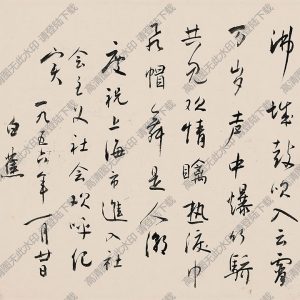 沸城鼓吹入云霄
万岁声中爆竹骄
共见欢情热泪巾
飞帽舞是人潮
庆祝上海市进入社
会主义社会欢呼纪
实
一九五六年一月廿日
白蕉